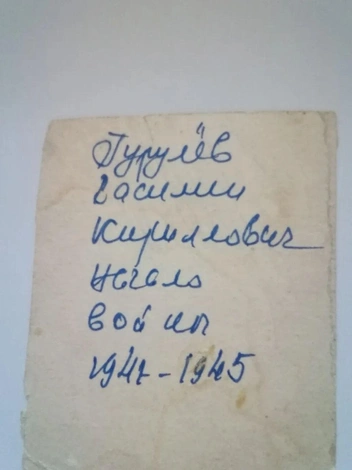 Гурулёв
Василий
Кириллович
Начало
войны
1941-1945